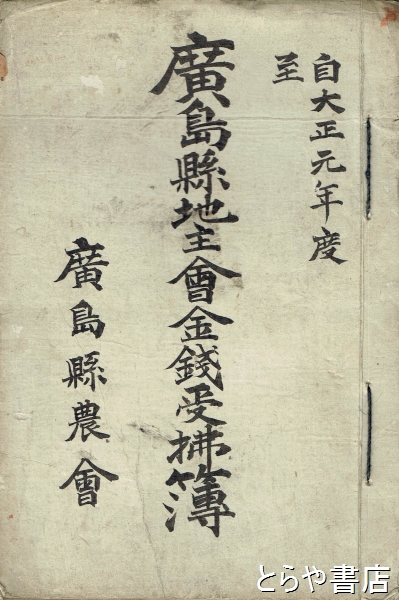 自大正元年度
至
廣島縣地主會金錢受拂簿
廣島縣農會
とらや書店